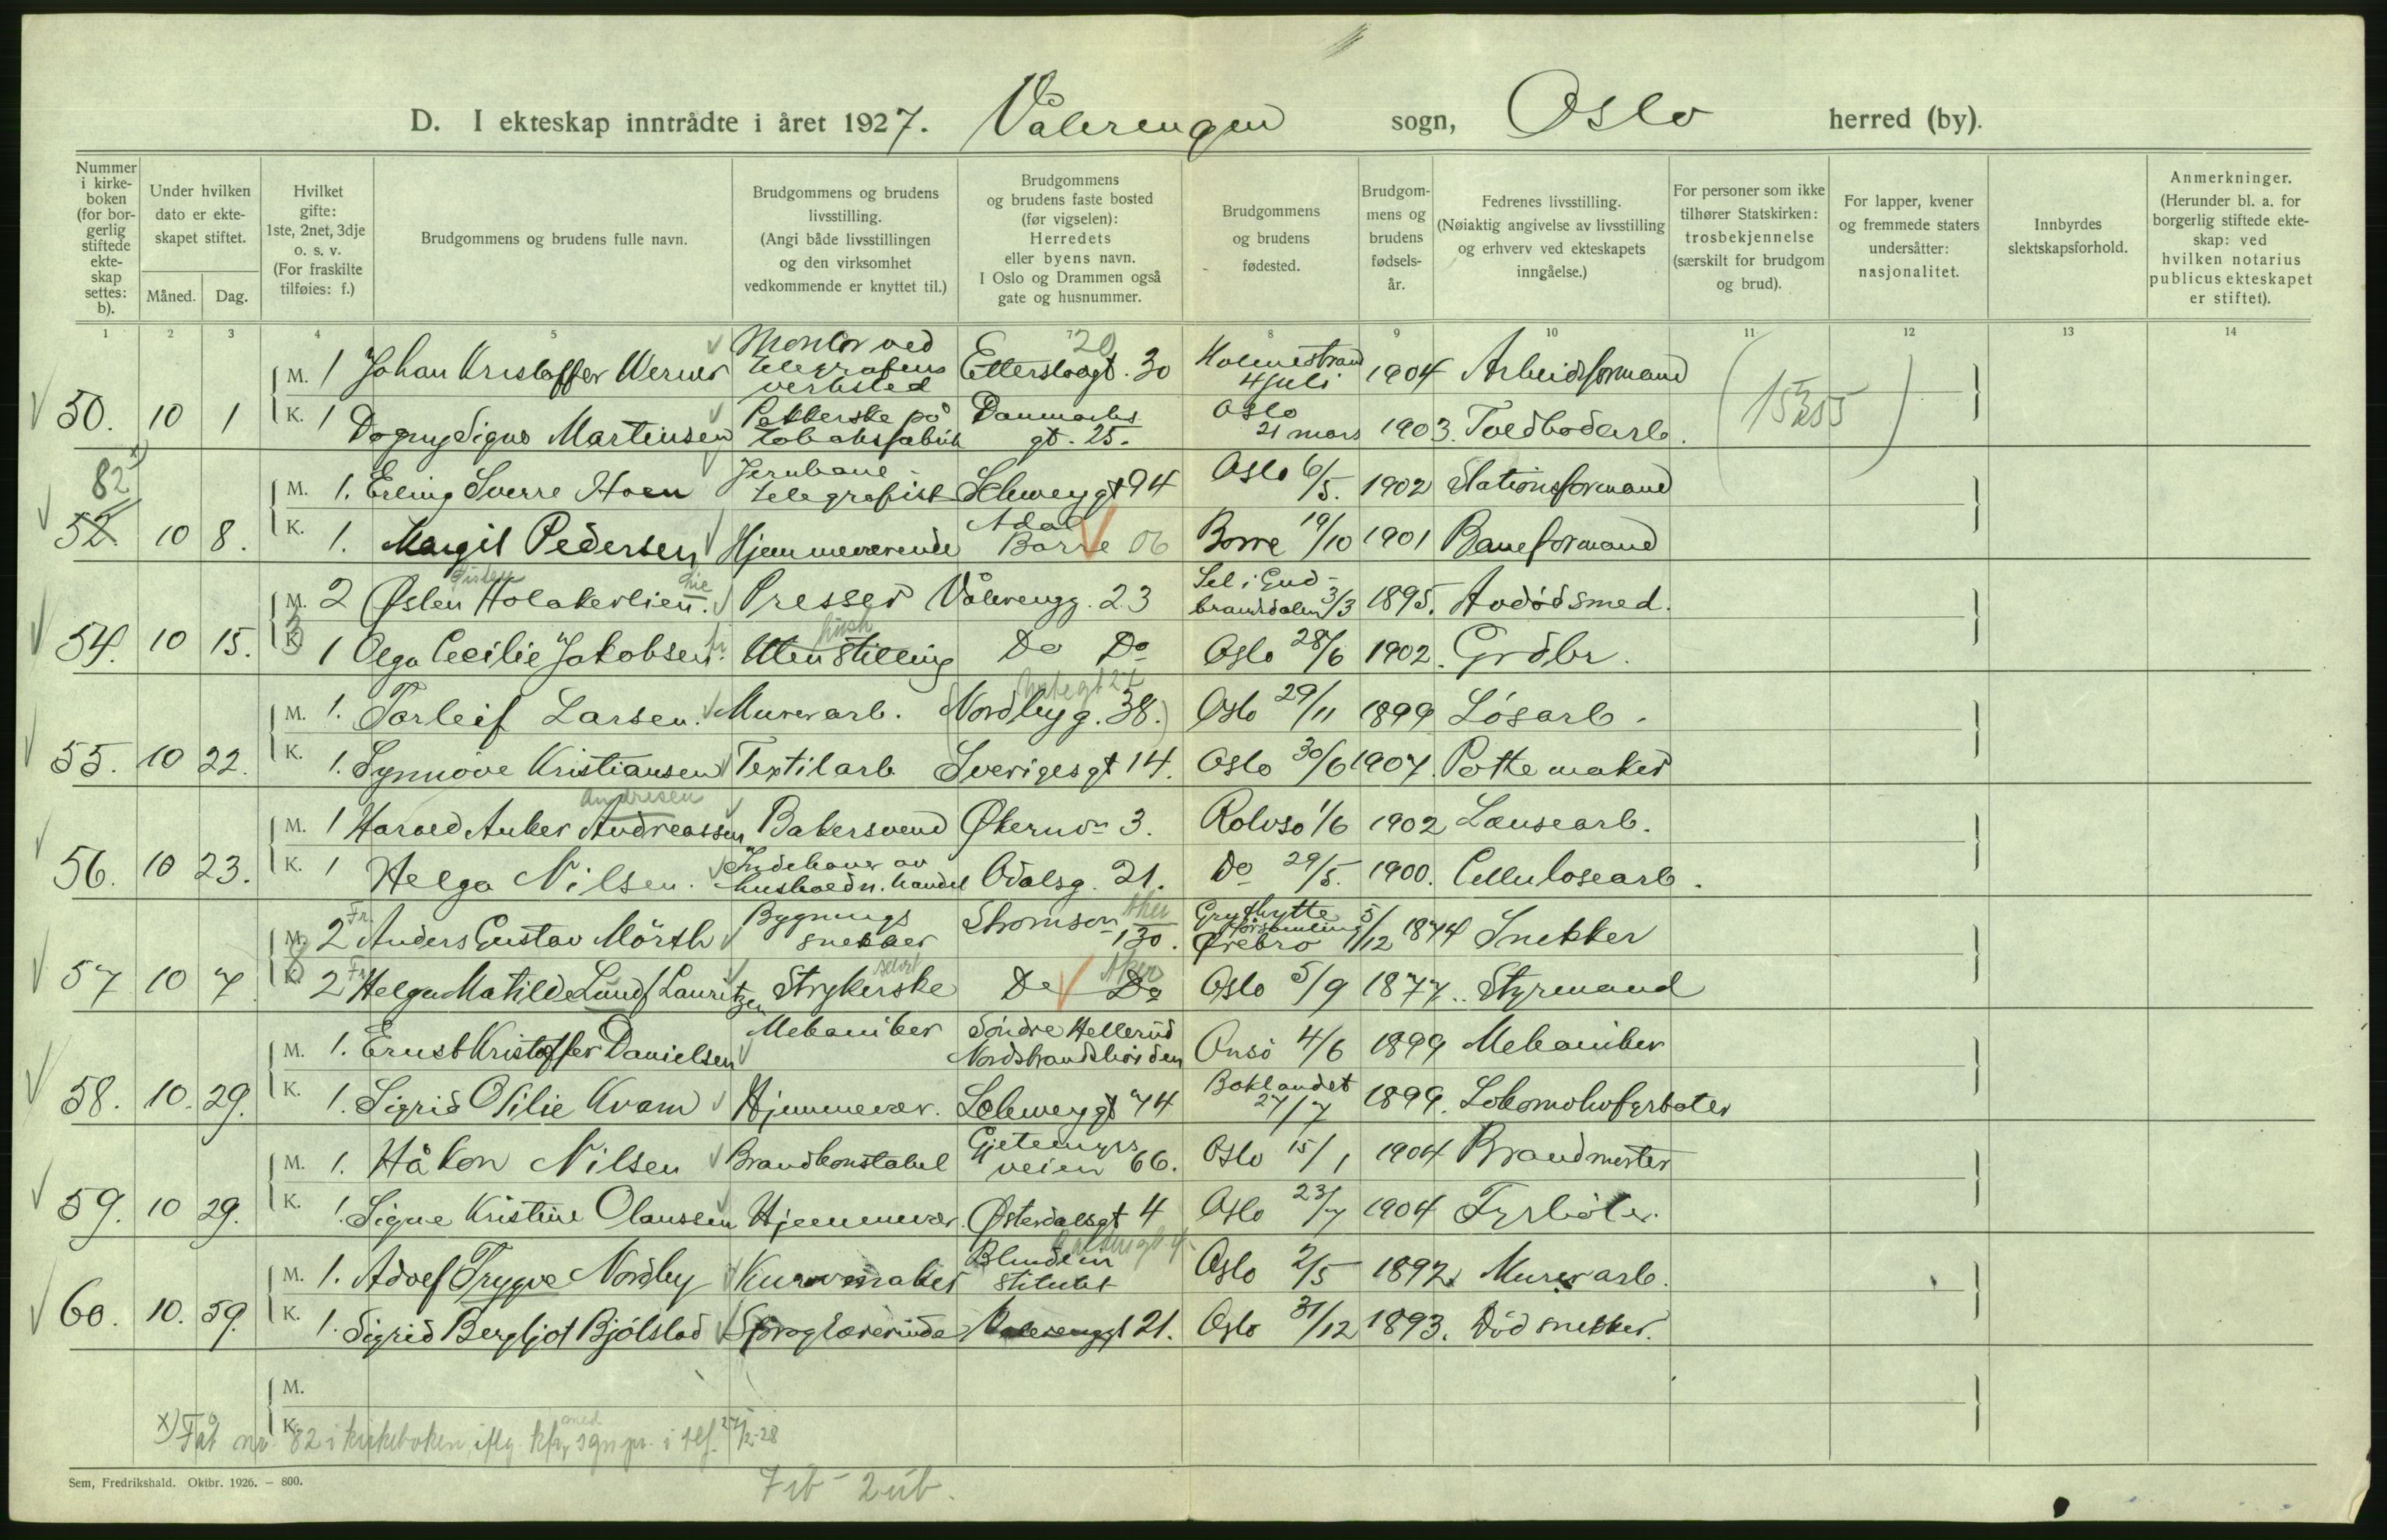 D. I ekteskap inntrådte i året 1927. Vålerengen sogn, Oslo herred (by).
Nummer i kirke- boken (for bor- gerlig stiftede ekte- skap settes: b).
Under hvilken dato er ekte- skapet stiftet.
Måned. Dag.
Hvilket gifte: 1ste, 2net, 3dje o. s. v. (For fraskilte tilføies: f.)
Brudgommens og brudens fulle navn.
Brudgommens og brudens livsstilling. (Angi både livsstillingen og den virksomhet vedkommende er knyttet til.)
Brudgommens og brudens faste bosted (før vigselen): Herredets eller byens navn. I Oslo og Drammen også gate og husnummer.
Brudgommens og brudens fødested.
Brudgom- mens og brudens fødsels- år.
Fedrenes livsstilling. (Nøiaktig angivelse av livsstilling og erhverv ved ekteskapets inngåelse.)
For personer som ikke tilhører Statskirken: trosbekjennelse (særskilt for brudgom og brud).
For lapper, kvener og fremmede staters undersåtter: nasjonalitet.
Innbyrdes slektskapsforhold.
Anmerkninger. (Herunder bl. a. for borgerlig stiftede ekte- skap: ved hvilken notarius publicus ekteskapet er stiftet).
1 2 3 4 5 7 8 9 10 11 12 13 14
M. 1 Johan Kristoffer Werner Montør ved telegrafens verksted Etterstadgt. 30 20 Holmestrand 4 juli 1904 Arbeidsformand
50. 10 1 K. 1 Dagny Signe Martinsen Pakkerske på tobaksfabrik Danmarks gt. 25. Oslo 21 mars 1903. Toldbodarb.
82 x)
M. 1. Erling Sverre Hoen Jernbane- telegrafist Schweiggt 94 Oslo 6/5. 1902 Stationsformand
52. 10 8. K. 1. Margit Pedersen Hjemmeværende Borre 06 Borre 19/10 1901 Baneformand
M. 2 Østen Holakerlien. Presser Vålerengg. 23 Sel i Gud- brandsdalen 3/3 1895. Avdød smed.
54. 10 15. K. 1 Olga Cecilie Jakobsen. Uten stilling hush Do Do Oslo 28/6 1902. Grdbr.
M. 1. Torleif Larsen. Murerarb. (Nordbyg. 38.) Oslo 29/11 1899 Løsarb.
55. 10 22. K. 1. Synnøve Kristiansen Textilarb Sverigesgt 14. Oslo 30/6 1907. Pottemaker
M. 1 Harald Anker Andreassen Andresen Bakersvend Økernvn 3. Rolvsø 1/6 1902 Lænsearb.
56. 10 23. K. 1 Helga Nilsen. Indehaver av husholdn. handel Odalsg. 21. Do 29/5. 1900. Cellulosearb.
M. 2 Fr. Anders Gustav Mörth Bygnings snekker Strømsvn 130. Aker Grythytte församling Örebro 5/12 1874 Snekker
57 10 7 K. 2 Fr. Helga Matilde Lund f Lauritzen Strykerske selvst Do Do Aker Oslo 5/9 1877. Styrmand
M. 1. Ernst Kristoffer Danielsen Mekaniker Søndre Hellerud Nordstrandshøiden Onsø 4/6 1899 Mekaniker
58. 10. 29. K. 1. Sigrid Otilie Kvam Hjemmevær. Schweiggt 74 Baklandet 27/7 1899. Lokomotivfyrbøter
M. 1. Håkon Nilsen Brandkonstabel Gjetemyrs veien 66. Oslo 15/1 1904 Brandmester
59. 10 29. K. 1. Signe Kristine Olaussen Hjemmevær. Østerdalsgt 4 Oslo 23/7 1904 Fyrbøter.
M. 1. Adolf Trygve Nordby Kurvmaker Blindein stitutet Oslo 2/5 1892 Murerarb.
60. 10. 59. K. 1. Sigrid Bergljot Bjølstad Sproglærerinde Vålerenggt 21. Oslo 31/12 1893. Død snekker.
M.
K.
x) Fåt nr 82 i kirkeboken, iflg. 27/2-28
Sem, Fredrikshald. Oktbr. 1926. – 800.